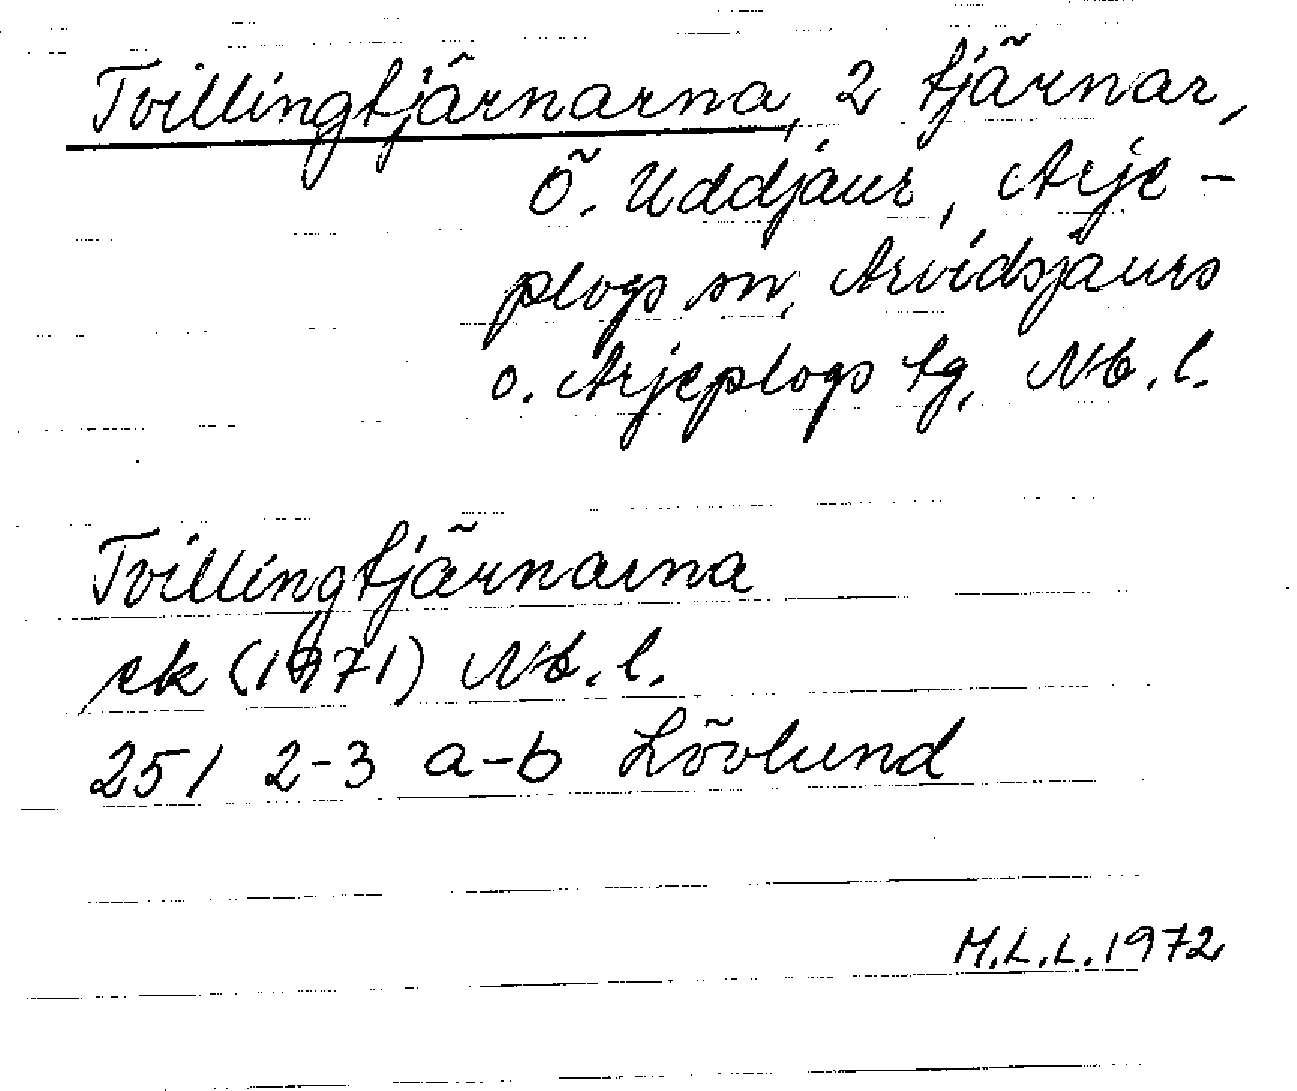 Tvillingtjärnarna, 2 tjärnar,
Ö. Uddjaur, Arje-
plogs sn, Arvidsjaurs
o. Arjeplogs tg, Nb. l.
Tvillingtjärnarna
ek (1971) Nb. l.
25 I 2-3 a-b Lövlund
M.L.L. 1972